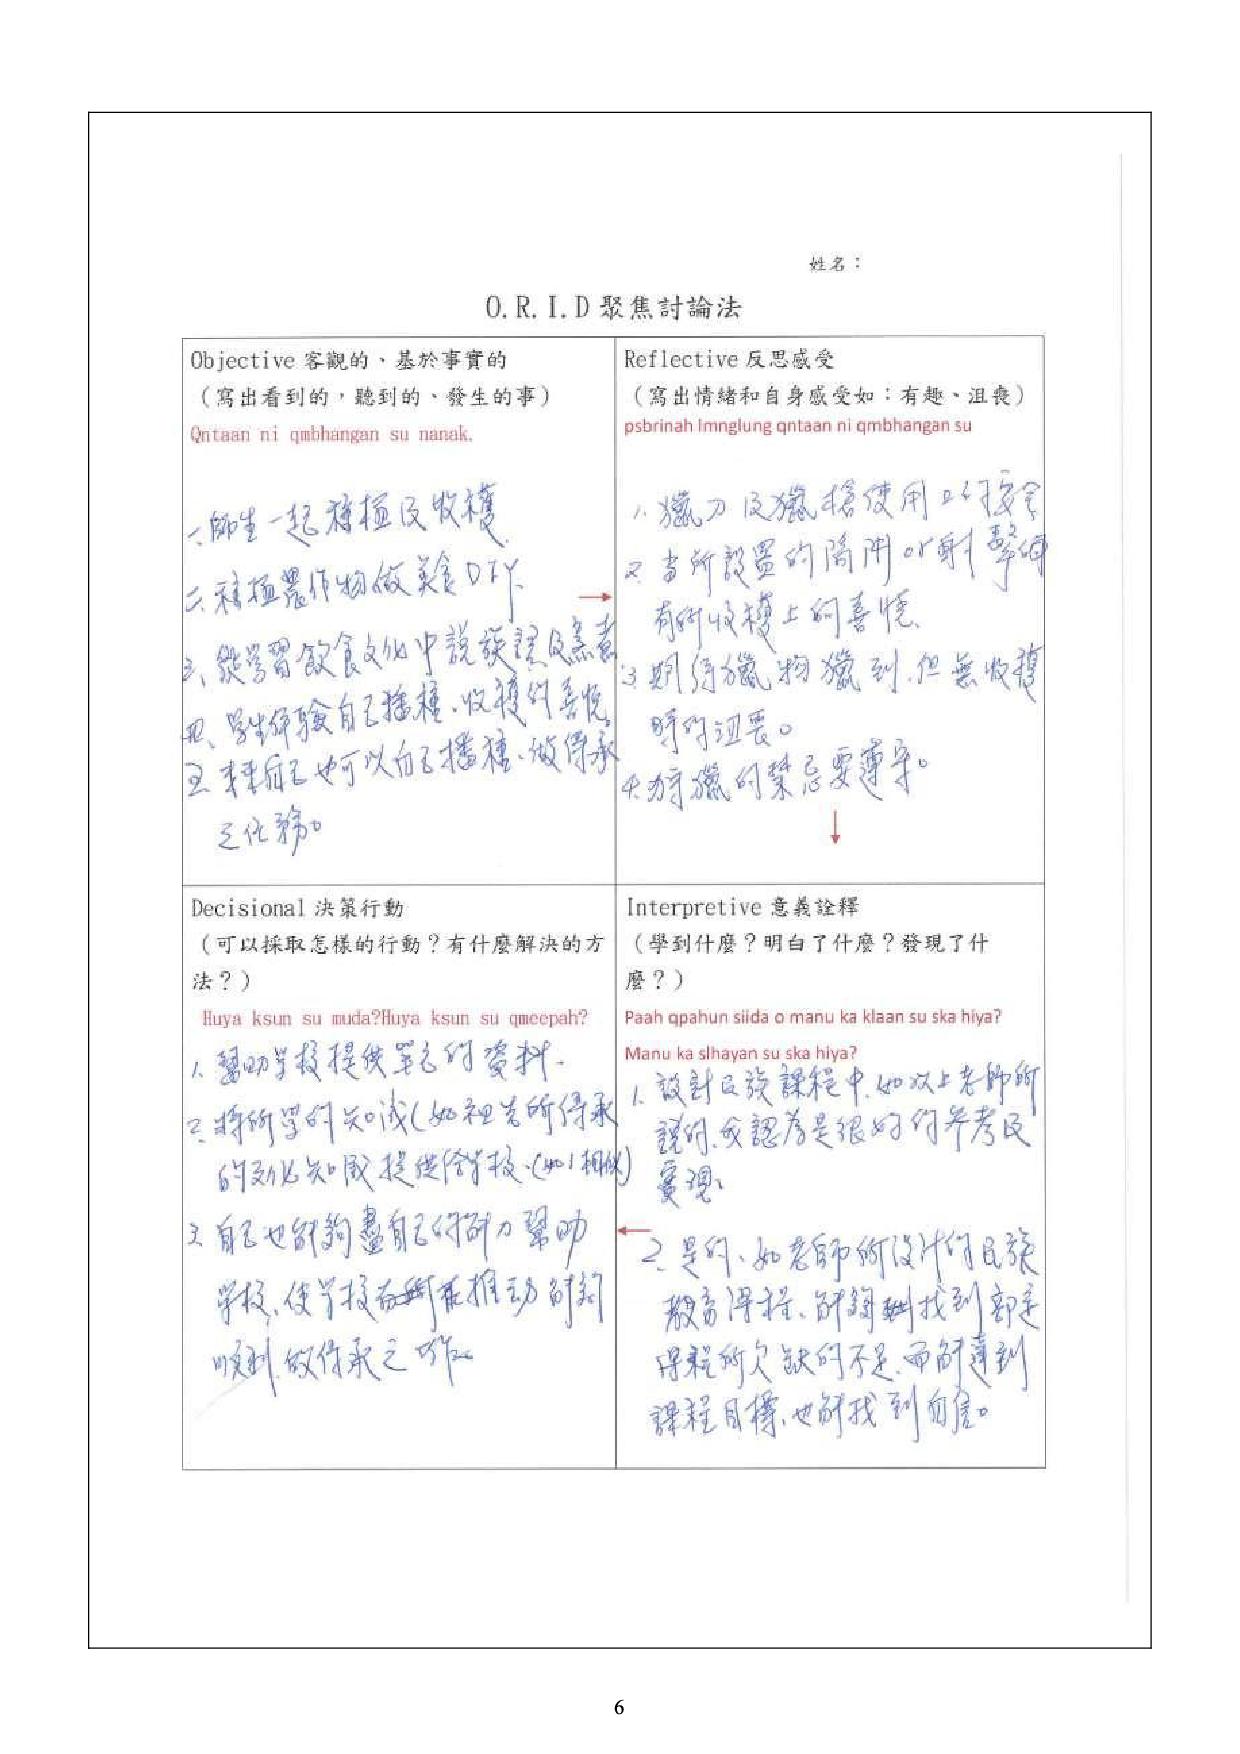 姓名：
O.R.I.D 聚焦討論法
Objective 客觀的、基於事實的
（寫出看到的，聽到的、發生的事）
Qntaan ni qmbhangan su nanak.
一、師生一起種植及收穫.
二、種植農作物做美食DIY.
三、從學習飲食文化中說族語及烹煮
四、學生体驗自己播種、收穫的喜悅。
五、未來自己也可以自己播種、做傳承
之任務。
Reflective 反思感受
（寫出情緒和自身感受如：有趣、沮喪）
psbrinah lmnglung qntaan ni qmbhangan su
1. 獵刀及獵槍使用上的安全
2. 當所設置的陷阱or射擊
有所收穫上的喜悅、
3. 獵物獵到.但無收穫
時的沮喪。
4. 狩獵的禁忌要遵守。
Decisional 決策行動
（可以採取怎樣的行動？有什麼解決的方
法？）
Huya ksun su muda?Huya ksun su qmeepah?
1. 幫助學校提供單元的資料.
2. 將所學的知识(如祖先所傳承
的文化知識提供給學校.(如1相似)
3. 自己也能夠盡自己的能力幫助
学校、使学校在推动能夠
順利.做传承之工作。
Interpretive 意義詮釋
（學到什麼？明白了什麼？發現了什
麼？）
Paah qpahun siida o manu ka klaan su ska hiya?
Manu ka slhayan su ska hiya?
1. 設計民族課程中.如以上老師所
說的.我認為是很好的参考及
實現、
2. 是的、如老師所设计的民族
教育課程、能夠找到部定
課程所欠缺的不足.而能達到
課程目標、也能找到自信。
6